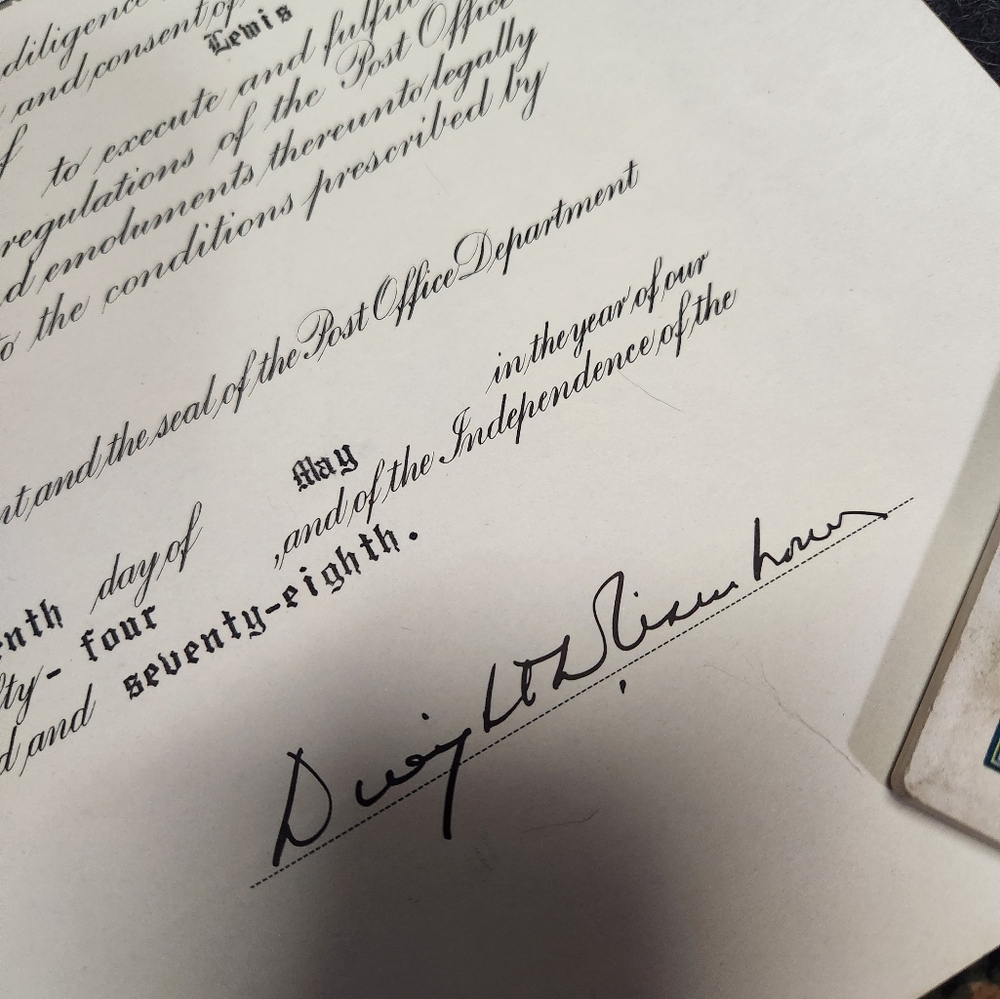 diligence
and consent of
Lewis
of to execute and fulfil
regulations of the Post Office
emoluments thereunto legally
to the conditions prescribed by
and the seal of the Post Office Department
day of May in the year of our
four , and of the Independence of the
and seventy-eighth.
Dwight D Eisenhower